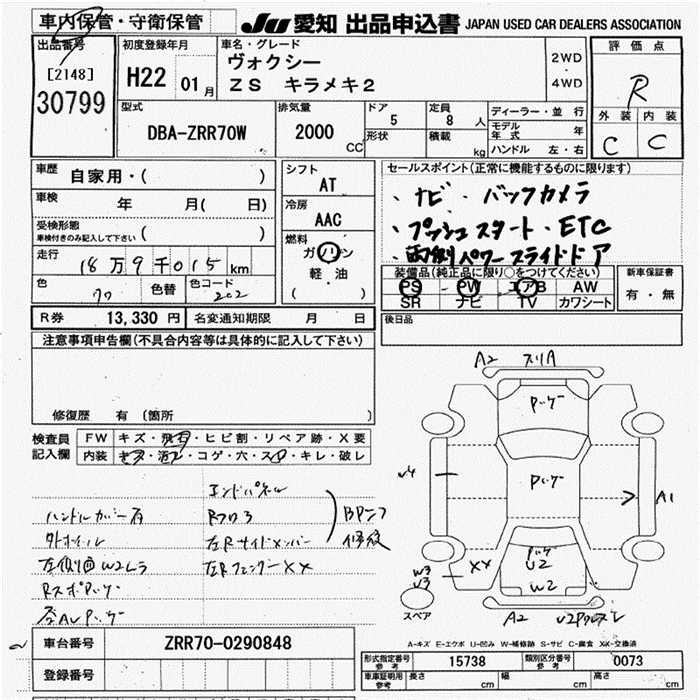 車内保管・守衛保管
JU 愛知 出品申込書 JAPAN USED CAR DEALERS ASSOCIATION
出品番号
[2148]
30799
初度登録年月
H22 01月
車名・グレード
ヴォクシー
ZS キラメキ2
2WD
・
4WD
評価点
R
外装 内装
C C
型式
DBA-ZRR70W
排気量
2000 CC
ドア
5
形状
定員
8 人
積載
kg
ディーラー・並行
モデル年式 年
ハンドル 左・右
車歴
自家用・( )
車検
年 月( 日)
受検形態
車検付きのみ記入して下さい( )
走行
18万9千015km
色 色替 色コード
クロ 202
シフト
AT
冷房
AAC
燃料
ガソリン
軽・油
( )
セールスポイント(正常に機能するものに限ります)
・ナビ・バックカメラ
・プッシュスタート・ETC
・両側パワースライドドア
装備品(純正品に限り○をつけてください)
PS PW エアB AW
SR ナビ TV カワシート
新車保証書
有・無
R券 13,330円 名変通知期限 月 日
後日品
注意事項申告欄(不具合内容等は具体的に記入して下さい)
修復歴 有(箇所 )
検査員記入欄
FW キズ・飛石・ヒビ割・リペア跡・X要
内装 キズ・汚れ・コゲ・穴・スレ・キレ・破レ
エンドパネル
ハンドルカバー有 Rフロア
外ホイール 左Rサイドメンバー
左側面W2ムラ 左RフェンダーXX
Rスポパッケー
BPニテ
修絞
A2 スリA
A1
XX
U2
W2
W3
U3
A2
スペア
A-キズ E-エクボ U-凹み W-補修跡 S-サビ C-腐食 XX-交換済
車台番号 ZRR70-0290848
登録番号
形式指定番号 参考 15738 類別区分番号 参考 0073
車庫証明用 参考 長さ cm 幅 cm 高さ cm